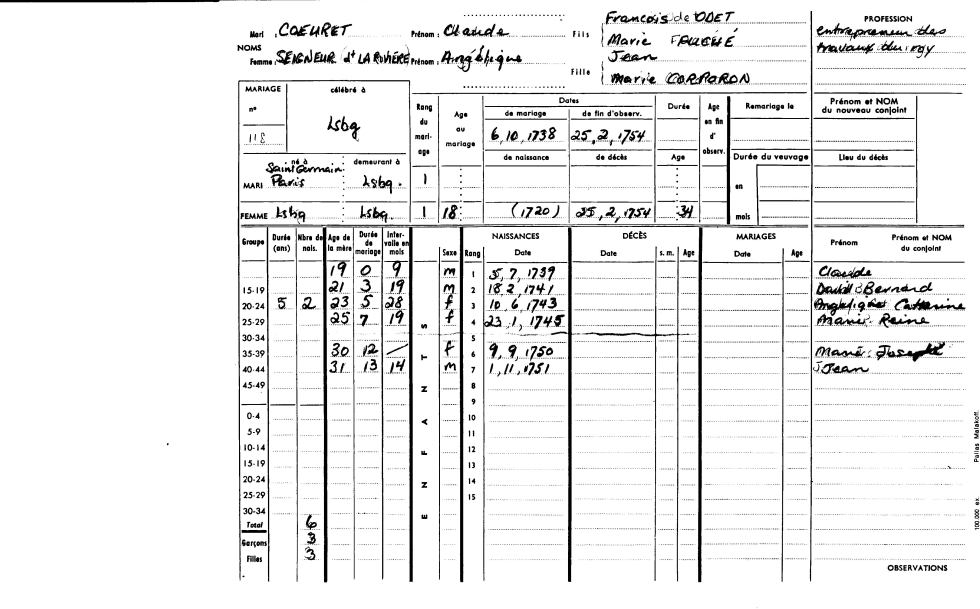 Mari : COEURET Prénom : Claude Fils François de ODET PROFESSION
Marie FAUCHÉ entrepreneur des
NOMS travaux du roy
Femme : SEIGNEUR (d+ LA RIVIÈRE) Prénom : Angélique Fille Jean
Marie CORPORON
MARIAGE célébré à Rang du mariage Age au mariage Dates Durée Age en fin d'observ. Remariage le Prénom et NOM du nouveau conjoint
n° de mariage de fin d'observ.
118 Lsbg 6, 10, 1738 25, 2, 1754
né à demeurant à de naissance de décès Age Durée du veuvage Lieu du décès
Saint Germain
MARI Paris Lsbg. 1 en
FEMME Lsbg Lsbg. 1 18 (1720) 25, 2, 1754 34 mois
Groupe Durée (ans) Nbre de nais. Age de la mère Durée de mariage Intervalle en mois ENFANTS Sexe Rang NAISSANCES Date DÉCÈS Date s. m. Age MARIAGES Date Age Prénom Prénom et NOM du conjoint
19 0 9 m 1 5, 7, 1739 Claude
15-19 21 3 19 m 2 18, 2, 1741 David Bernard
20-24 5 2 23 5 28 f 3 10, 6, 1743 Catherine
25-29 25 7 19 f 4 23, 1, 1745 Marie Reine
30-34 5
35-39 30 12 / f 6 9, 9, 1750 Marie Josephe
40-44 31 13 14 m 7 1, 11, 1751 Jean
45-49 8
9
0-4 10
5-9 11
10-14 12
15-19 13
20-24 14
25-29 15
30-34
Total 6
Garçons 3
Filles 3
OBSERVATIONS
100 000 ex. Pallas Malakoff.